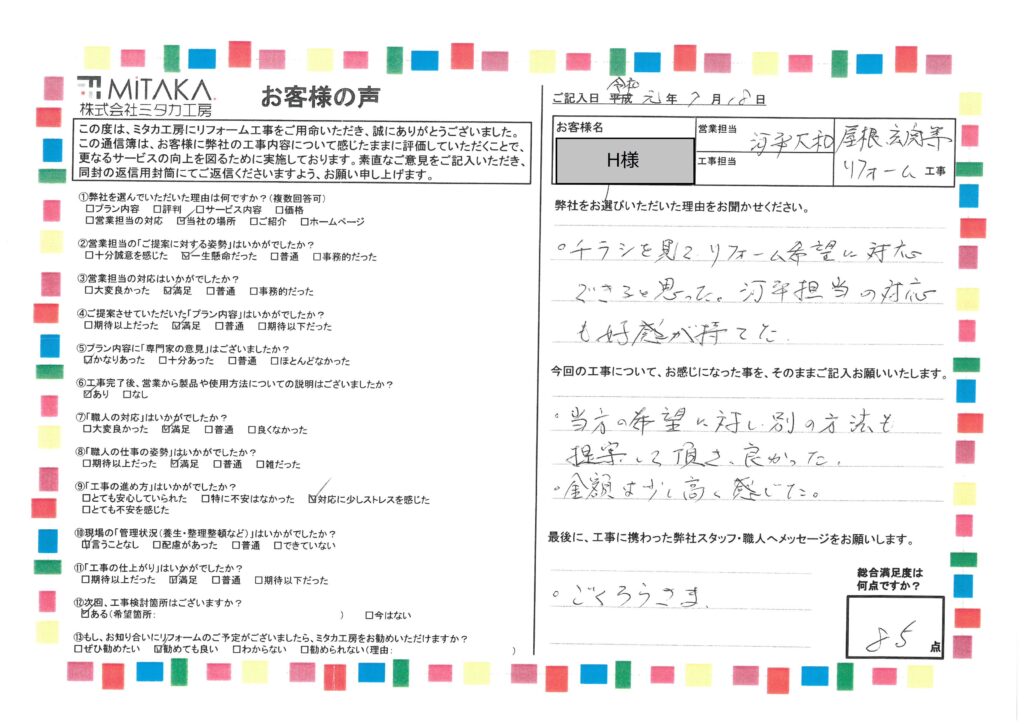 MiTAKA
株式会社ミタカ工房
お客様の声
この度は、ミタカ工房にリフォーム工事をご用命いただき、誠にありがとうございました。
この通信簿は、お客様に弊社の工事内容について感じたままに評価していただくことで、
更なるサービスの向上を図るために実施しております。素直なご意見をご記入いただき、
同封の返信用封筒にてご返信くださいますよう、お願い申し上げます。
①弊社を選んでいただいた理由は何ですか？（複数回答可）
□プラン内容 □評判 □サービス内容 □価格
□営業担当の対応 ☑当社の場所 □ご紹介 □ホームページ
②営業担当の「ご提案に対する姿勢」はいかがでしたか？
□十分誠意を感じた ☑一生懸命だった □普通 □事務的だった
③営業担当の対応はいかがでしたか？
□大変良かった ☑満足 □普通 □事務的だった
④ご提案させていただいた「プラン内容」はいかがでしたか？
□期待以上だった ☑満足 □普通 □期待以下だった
⑤プラン内容に「専門家の意見」はございましたか？
☑かなりあった □十分あった □普通 □ほとんどなかった
⑥工事完了後、営業から製品や使用方法についての説明はございましたか？
☑あり □なし
⑦「職人の対応」はいかがでしたか？
□大変良かった ☑満足 □普通 □良くなかった
⑧「職人の仕事の姿勢」はいかがでしたか？
□期待以上だった ☑満足 □普通 □雑だった
⑨「工事の進め方」はいかがでしたか？
□とても安心していられた □特に不安はなかった ☑対応に少しストレスを感じた
□とても不安を感じた
⑩現場の「管理状況（養生・整理整頓など）」はいかがでしたか？
☑言うことなし □配慮があった □普通 □できていない
⑪「工事の仕上がり」はいかがでしたか？
□期待以上だった ☑満足 □普通 □期待以下だった
⑫次回、工事検討箇所はございますか？
☑ある（希望箇所: ） □今はない
⑬もし、お知り合いにリフォームのご予定がございましたら、ミタカ工房をお勧めいただけますか？
□ぜひ勧めたい ☑勧めても良い □わからない □勧められない（理由: ）
令和
ご記入日 平成 元 年 9 月 18 日
お客様名
H様
営業担当 河平大和
工事担当
屋根 玄関等
リフォーム 工事
弊社をお選びいただいた理由をお聞かせください。
○チラシを見て リフォーム希望に対応
できると思った。河平担当の対応
も好感が持てた.
今回の工事について、お感じになった事を、そのままご記入お願いいたします。
・当方の希望に対し別の方法も
提案して頂き、良かった.
・金額は少し高く感じた。
最後に、工事に携わった弊社スタッフ・職人へメッセージをお願いします。
○ごくろうさま.
総合満足度は
何点ですか？
85 点